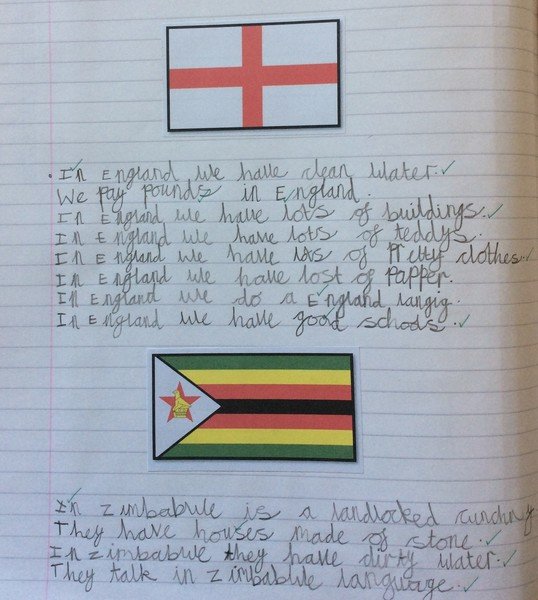 In England we have clean water.
We pay pounds in England.
In England we have lots of buildings.
In England we have lots of teddys.
In England we have lots of Pretty clothes.
In England we have lost of papper.
In England we do a England langig.
In England we have good schools.
In Zimbabwe is a landlocked
They have houses made of stone.
In Zimbabwe they have dirty water.
They talk in Zimbabwe language.